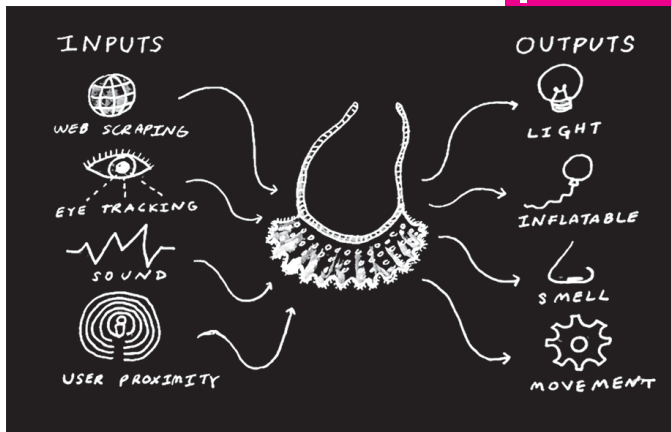 INPUTS
WEB SCRAPING
EYE TRACKING
SOUND
USER PROXIMITY
OUTPUTS
LIGHT
INFLATABLE
SMELL
MOVEMENT